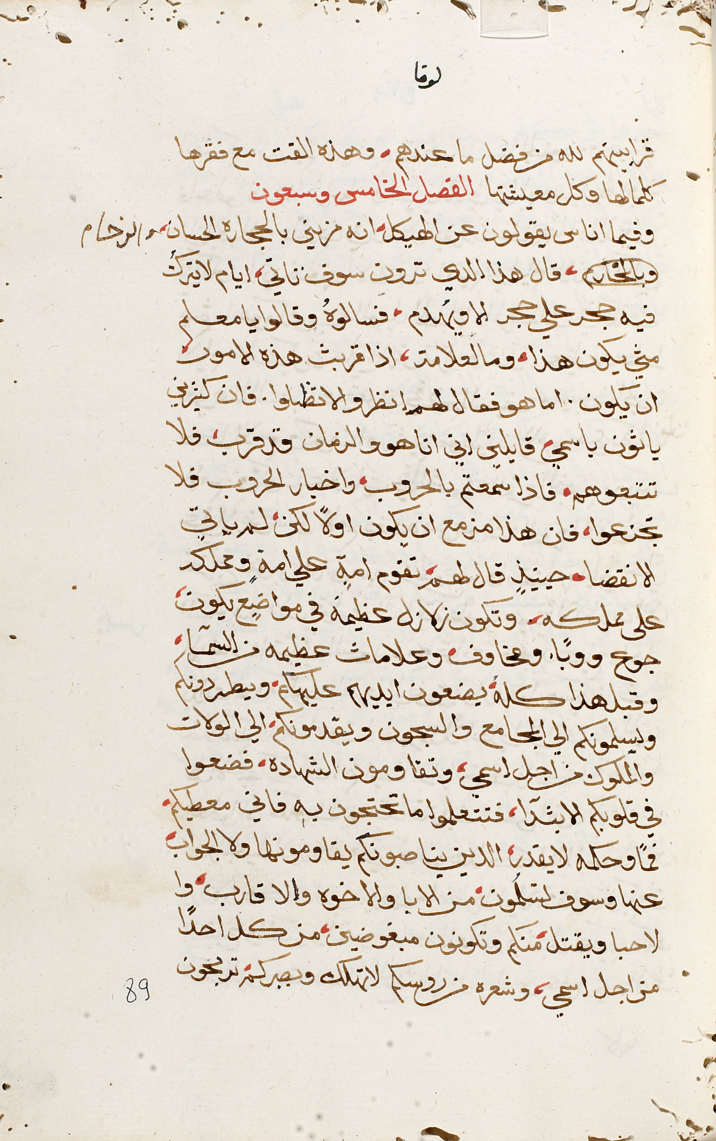 لوقا
قرابينهم لله من فضل ما عندهم، وهذه القت مع فقرها
كلمالها وكل معيشتها الفصل الخامس وسبعون
وفيما اناس يقولون عن الهيكل، انه مزين بالحجارة الحسان، والرخام
قال هذا الذي ترون سوف تاتي، ايام لا يترك
فيه حجر علي حجر الا ويهدم، فسالوهُ وقالوا يا معلم
متي يكون هذا، وما العلامة، اذا قربت هذه الامور
ان يكون. اما هو فقال لهم انظروا لا تظلوا. فان كثيرين
ياتون باسمي، قايلين اني انا هو والزمان قد قرب، فلا
تتبعوهم، فاذا سمعتم بالحروب، واخبار الحروب فلا
تجزعوا، فان هذا مزمع ان يكون اولاً لكن، لم ياتي
الانقضا، حينيذٍ قال لهم، تقوم امةٍ علي امةٍ ومملكه
علي مملكه، وتكون زلازل عظيمة في مواضع يكون،
جوع ووبًا، ومخاوف، وعلامات عظيمه من السمآ،
وقبل هذا كلهُ، يضعون ايديهم عليكم، ويطردونكم
ويسلمونكم الي المجامع والسجون ويقدمونكم، الي الولات
والملوك من اجل اسمي، وتقاومون الشهادة، فضعوا
في قلوبكم الا يبتدآ، فتتعلموا ما تحتجون به فاني معطيكم،
فمًا وحكمه لا يقدر، الذين يناصبونكم يقاومونها ولا الجواب،
عنها وسوف تسلمون، من الابا والاخوه والاقارب، وا
لاحبا ويقتل، منكم وتكونون مبغوضين، من كل احدًا
من اجل اسمي، وشعره من روسكم لا تهلك وبصبركم، تربحون
89